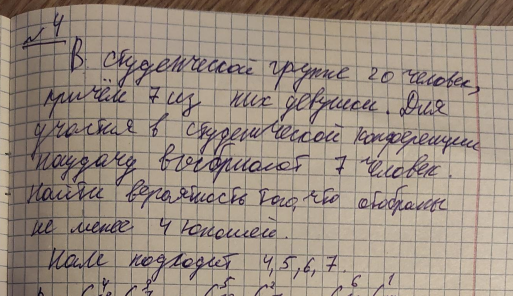 № 4
В студенческой группе 20 человек,
причём 7 из них девушки. Для
участия в студенческой конференции
наудачу выбирают 7 человек.
Найти вероятность того, что отобраны
не менее 4 юношей.
Нам подходит 4, 5, 6, 7.